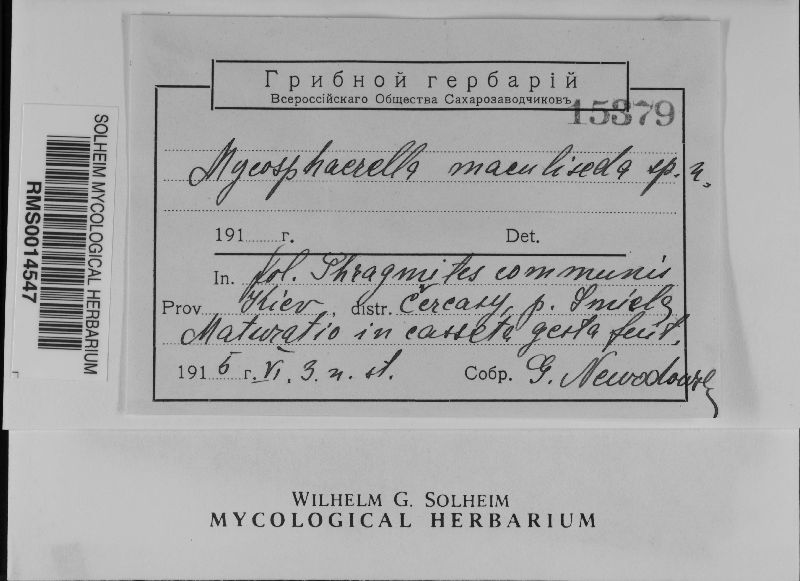 Грибной гербарій
Всероссійскаго Общества Сахарозаводчиковъ
15379
Mycosphaerella maculiseda sp. n.
191 г. Det.
In. fol. Phragmites communis
Prov. Kiev, distr. Čercasy, p. Smiela
Maturatio in casseta gesta fuit.
1915 г. VI. 3. n. st. Собр. G. Newodowsky
SOLHEIM MYCOLOGICAL HERBARIUM
RMS0014547
WILHELM G. SOLHEIM
MYCOLOGICAL HERBARIUM